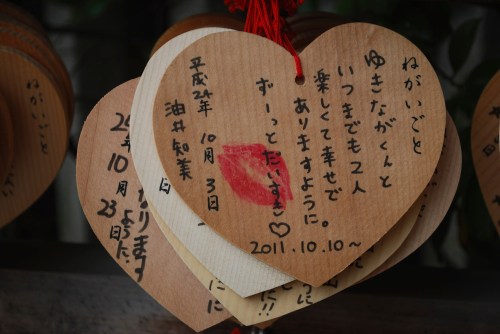 ねがいごと
ゆきながくんと
いつまでも2人
楽しくて幸せで
ありますように。
ずーっとだいすき♡
2011.10.10～
平成24年 10月3日
油井知美
24年10月23日
なります
ように
ねがいごと